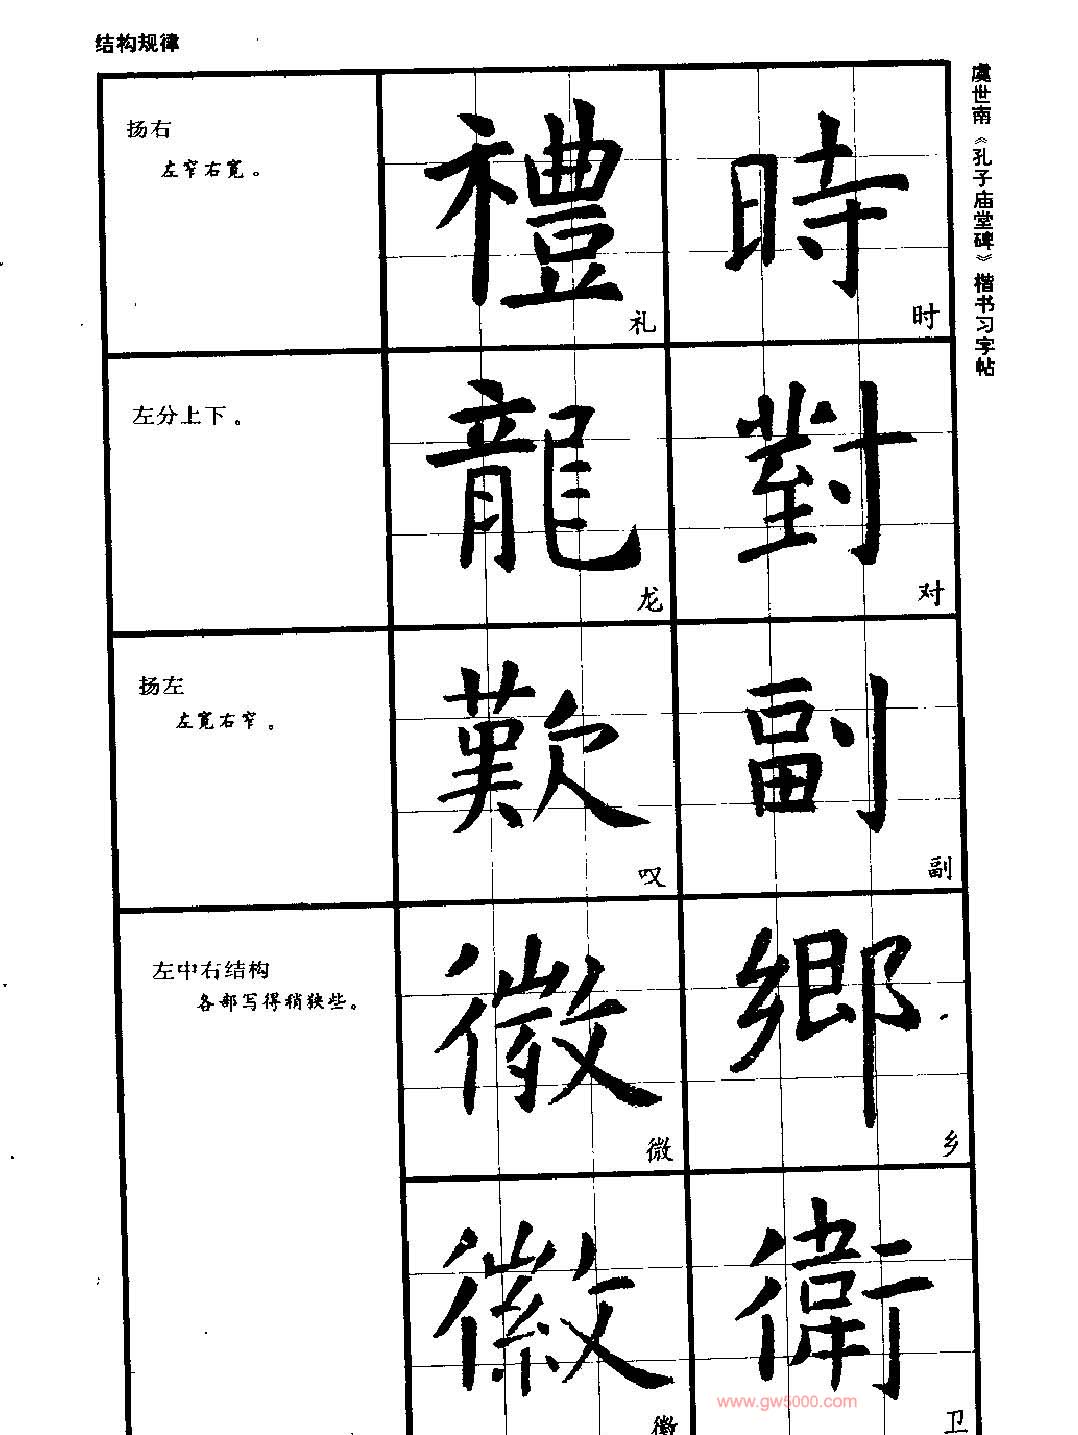 结构规律
虞世南《孔子庙堂碑》楷书习字帖
扬右
左窄右宽。
禮 時
礼 时
左分上下。
龍 對
龙 对
扬左
左宽右窄。
歎 副
叹 副
左中右结构
各部写得稍狭些。
微 鄉
微 乡
徽 衛
徽 卫
www.gw5000.com